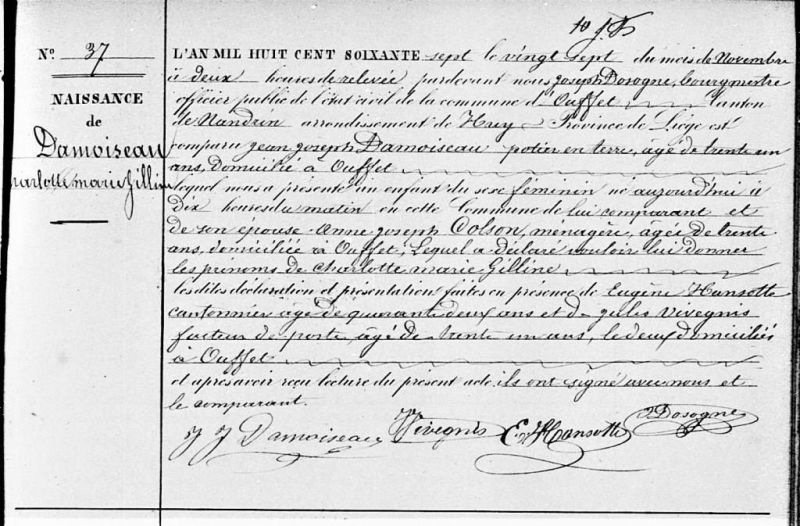 N° 37
NAISSANCE
de
Damoiseau
Charlotte Marie Gilline
L'AN MIL HUIT CENT SOIXANTE sept le vingt sept du mois de Novembre
à deux heures de relevée pardevant nous Joseph Dosogne, bourgmestre
officier public de l'état civil de la commune d'Ouffet canton
de Nandrin arrondissement de Huy Province de Liége est
comparu jean joseph Damoiseau potier en terre, agé de trente un
ans, Domicilié à Ouffet
lequel nous a présenté un enfant du sexe féminin né aujourd'hui à
Dix heures du matin en cette Commune de lui comparant et
de son épouse Anne joseph Colson, ménagère, âgée de trente
ans, domiciliée à Ouffet, Lequel a déclaré vouloir lui donner
les prénoms de Charlotte marie Gilline
lesdites déclaration et présentation faites en présence de Eugène Hansotte
cantonnier âgé de quarante deux ans et de jules Vivegnis
facteur de poste, âgé de trente un ans, le deux domiciliés
à Ouffet
et après avoir reçu lecture du présent acte, ils ont signé avec nous et
le comparant.
J J Damoiseau Vivegnis E. Hansotte Dosogne